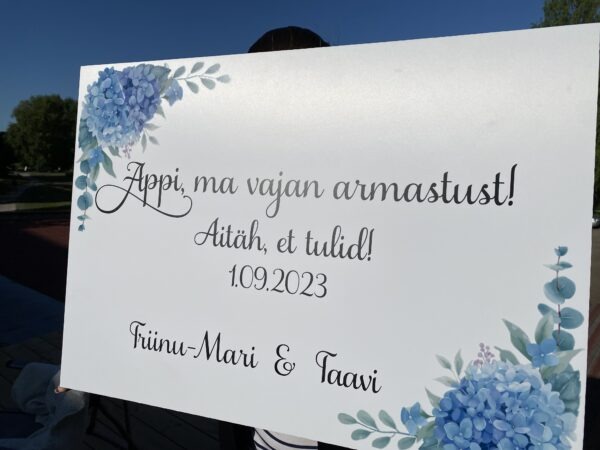 Appi, ma vajan armastust!
Aitäh, et tulid!
1.09.2023
Triinu-Mari & Taavi